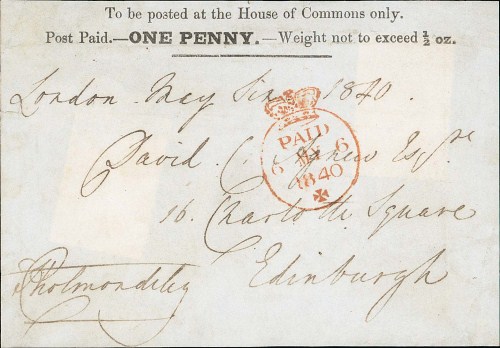 To be posted at the House of Commons only.
Post Paid.—ONE PENNY.—Weight not to exceed ½ oz.
London May Six 1840.
PAID
6 MY 6
1840
David C. Agnew Esqre
16. Charlotte Square
Edinburgh
Cholmondeley